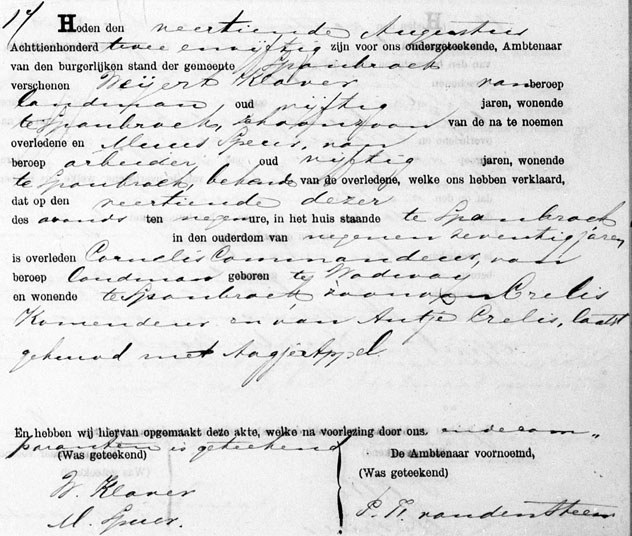 17 Heden den veertiende Augustus
Achttienhonderd twee en vijftig zijn voor ons ondergeteekende, Ambtenaar
van den burgerlijken stand der gemeente Spanbroek
verschenen Weijert Klaver van beroep
landman, oud vijftig jaren, wonende
te Spanbroek, schoonzoon van de na te noemen
overledene en Meeus Speur, van
beroep arbeider, oud vijftig jaren, wonende
te Spanbroek, bekende van de overledene, welke ons hebben verklaard,
dat op den veertiende dezer
des avonds ten negen ure, in het huis staande te Spanbroek
in den ouderdom van negen en seventig jaren
is overleden Cornelis Commandeur, van
beroep landman geboren te Wadway
en wonende te Spanbroek zoon van Crelis
Komendeur en van Antje Crelis, laatst
gehuwd met Aagje Appel.
En hebben wij hiervan opgemaakt deze akte, welke na voorlezing door ons en de com„
paranten is geteekend
(Was geteekend) De Ambtenaar voornoemd,
(Was geteekend)
W. Klaver
M. Speur. P. H. van den Steen